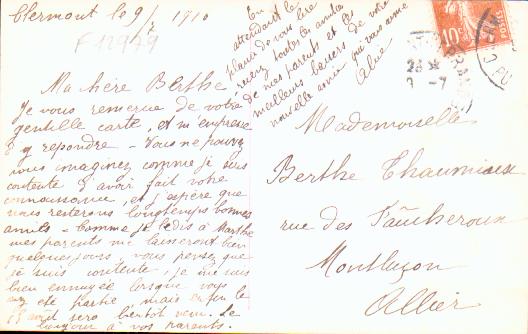 Clermont le 9/7 1910
F 12979
Ma chère Berthe
Je vous remercie de votre
gentille carte, et m'empresse
d'y repondre - Vous ne pouvez
vous imaginez comme je suis
contente d'avoir fait votre
connaissance, et j'espère que
nous resterons longtemps bonnes
amies - Comme je le dis à Marthe
mes parents me laisseront bien
quelques jours vous pensez que
je suis contente, je me suis
bien ennuyée lorsque vous
avez été partie, mais enfin le
août sera bientôt venu. Le
bonjour à vos parents.
En
attendant le
plaisir de vous lire
recevez toutes les amitiés
de mes parents et les
meilleurs baisers de votre
nouvelle amie qui vous aime
Mademoiselle
Berthe Chaumieux
rue des Faucheroux
Montluçon
Allier
10
POSTES